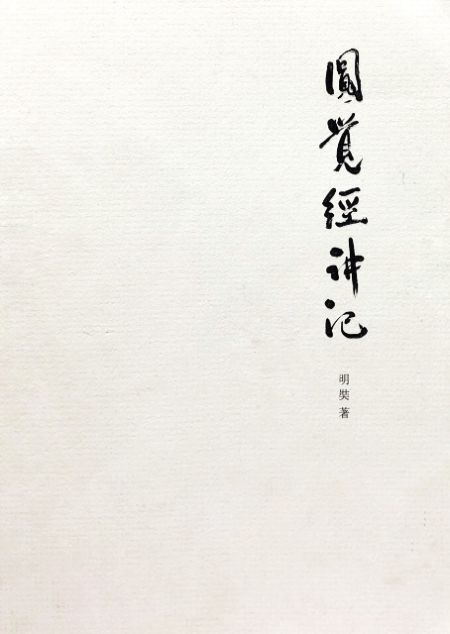 圓覺經讲记
明奘 著